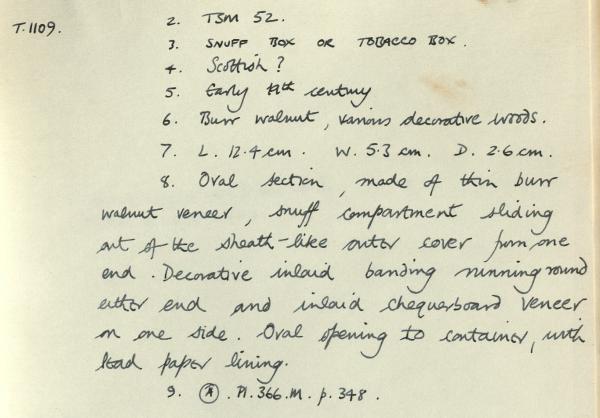 T.1109.
2. TSM 52.
3. SNUFF BOX OR TOBACCO BOX.
4. Scottish?
5. Early century
6. Burr walnut, various decorative woods.
7. L. 12.4 cm. W. 5.3 cm. D. 2.6 cm.
8. Oval section, made of thin burr
walnut veneer, snuff compartment sliding
out of the sheath-like outer cover from one
end. Decorative inlaid banding running round
either end and inlaid chequerboard veneer
on one side. Oval opening to container, with
lead paper lining.
9. A. Pl. 366.M. p. 348.